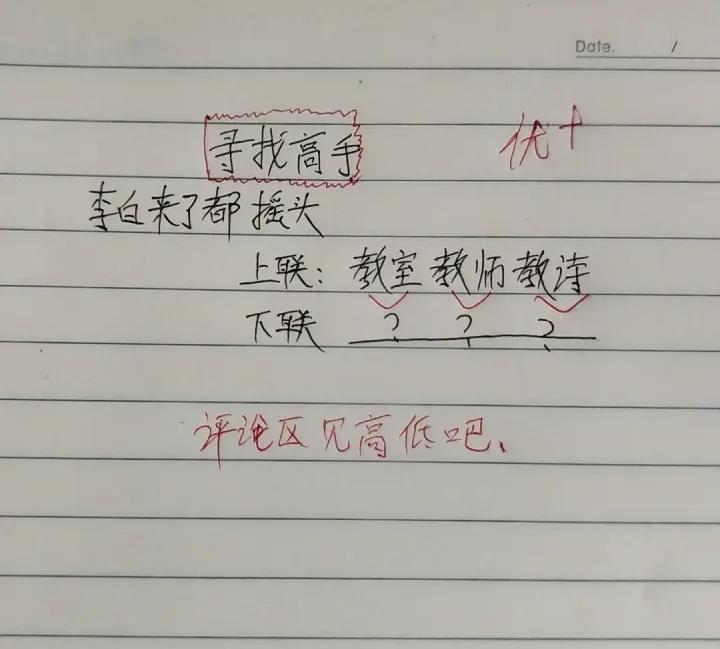 Date. /
寻找高手
优+
李白来了都摇头
上联: 教室教师教诗
下联 ? ? ?
评论区见高低吧、